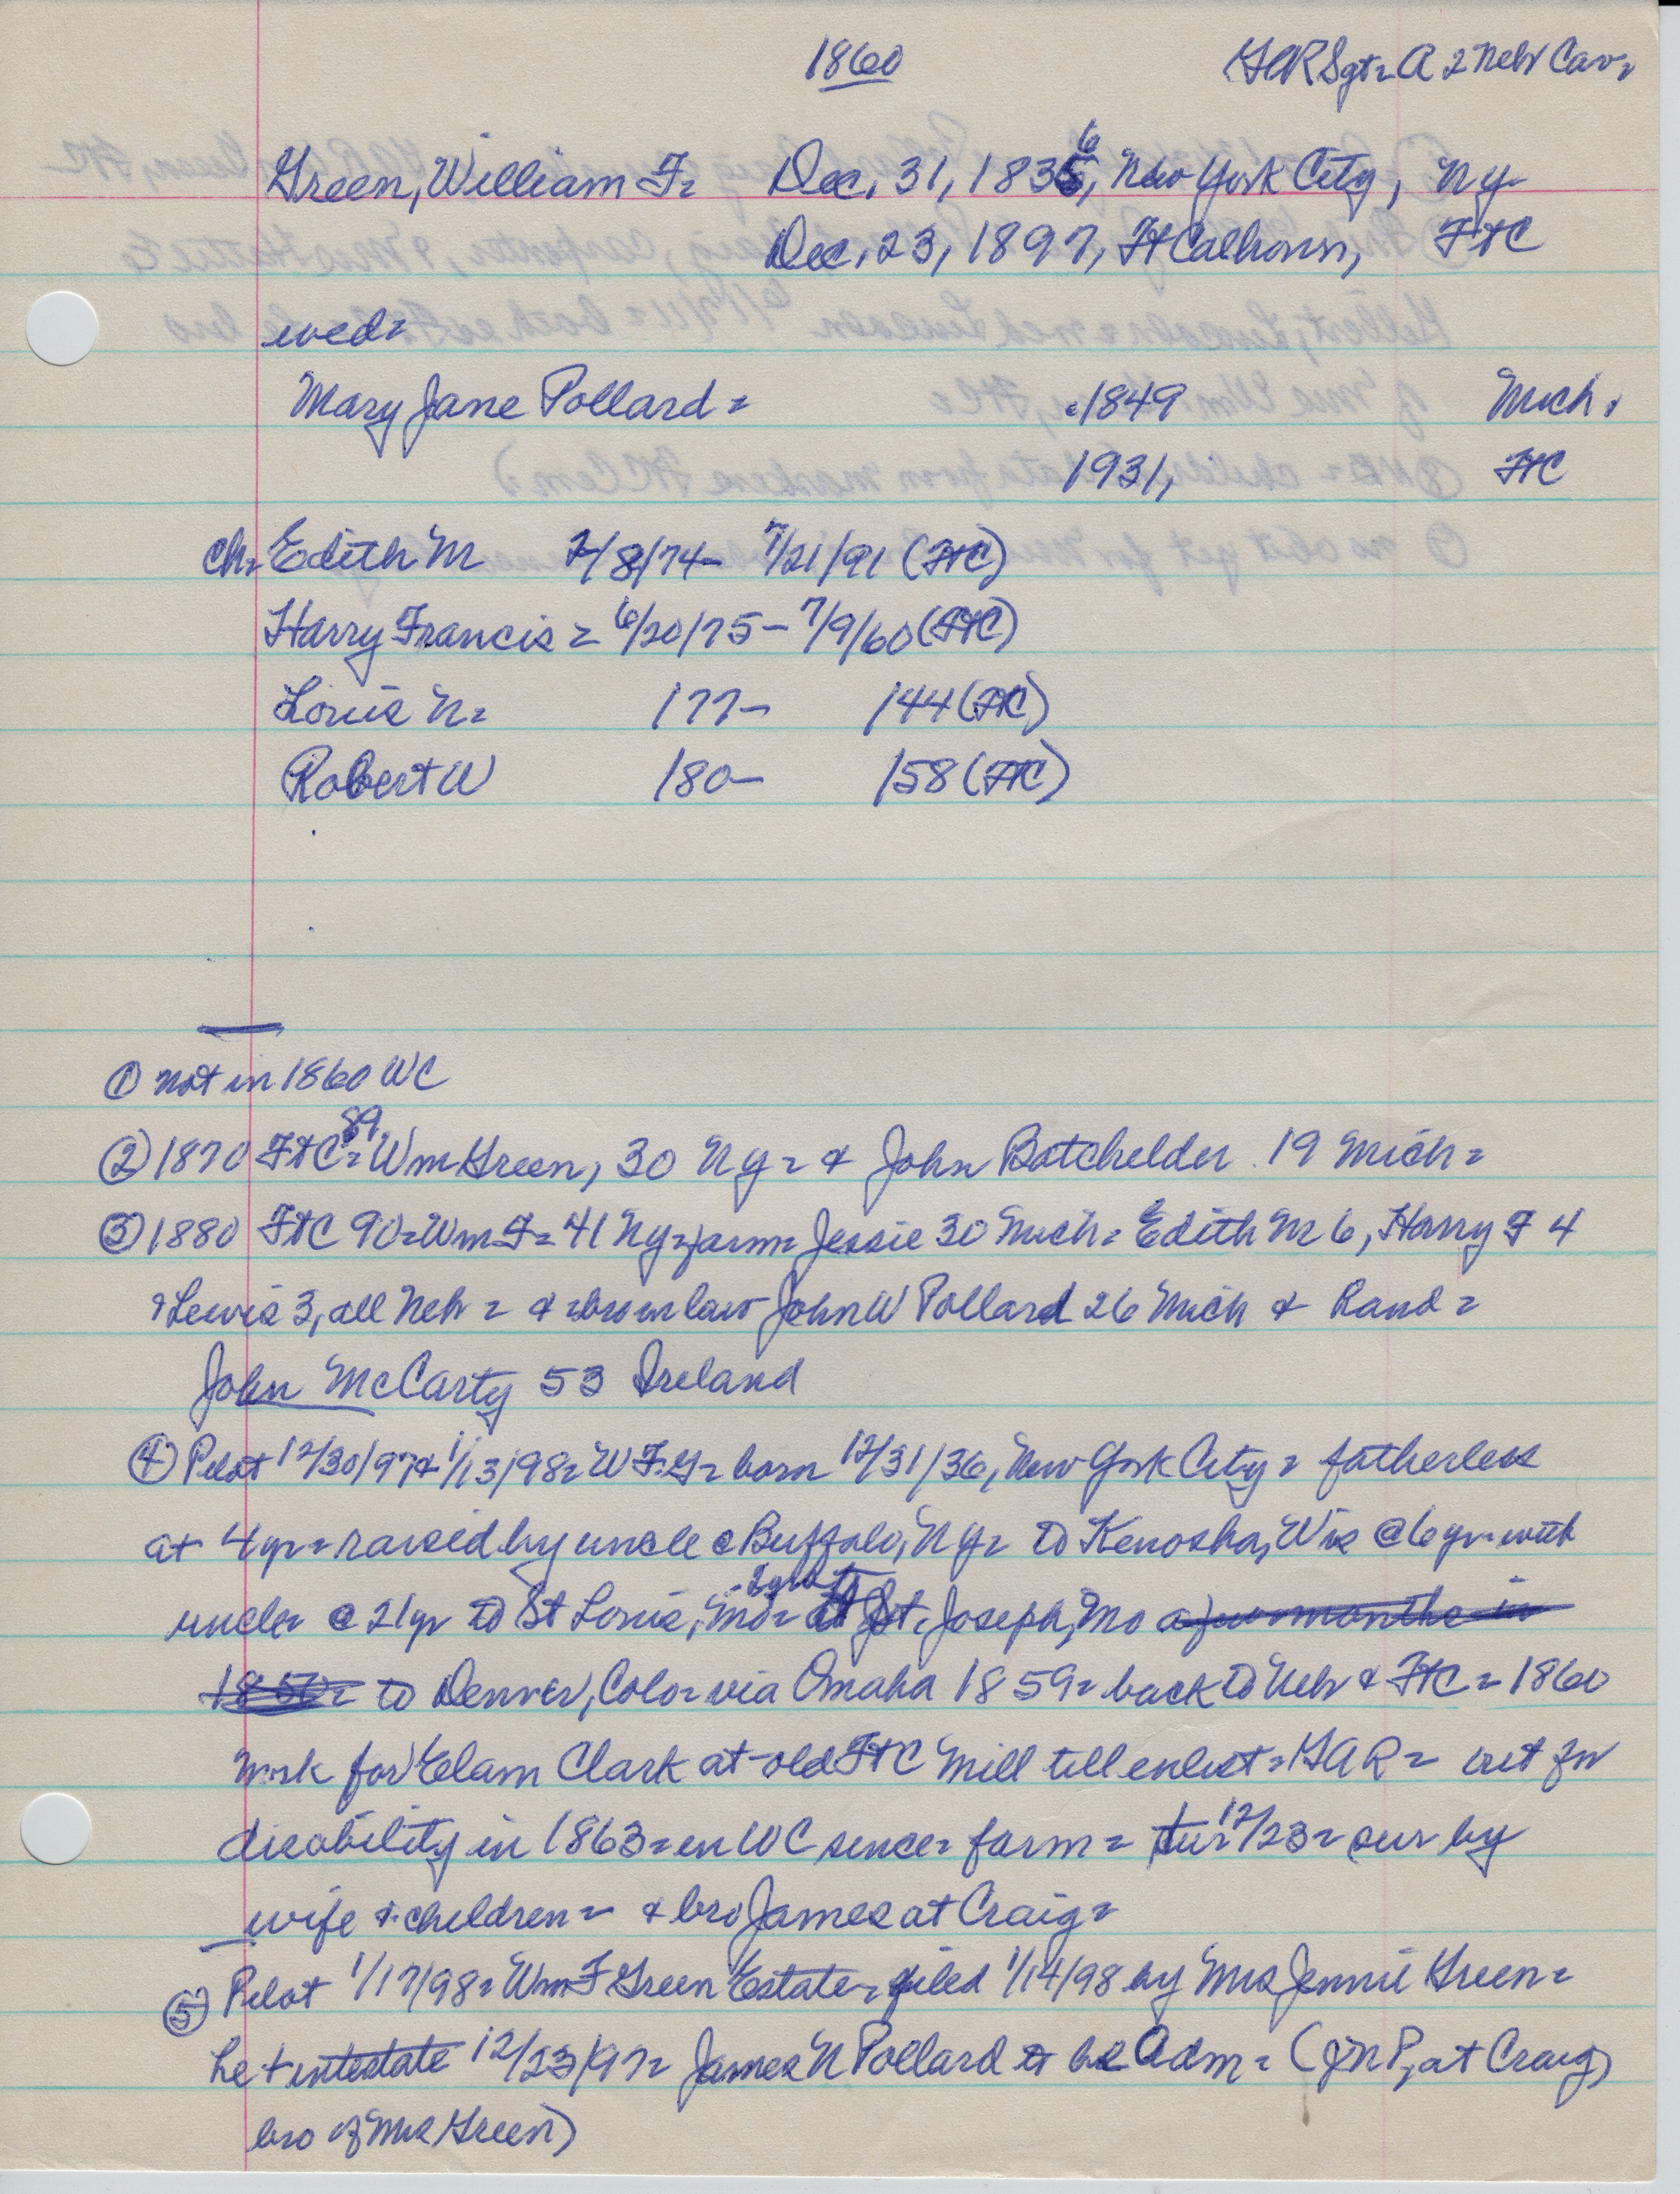 1860
GAR Sgt = A 2 Nebr Cav =
Green, William F = Dec. 31, 1836, New York City, Ny
Dec. 23, 1897, Ft Calhoun, FtC
wed =
Mary Jane Pollard = c1849 Mich.
1931, FtC
ch = Edith M 2/8/74 - 7/21/91 (FtC)
Harry Francis = 6/20/75 - 7/9/60 (FtC)
Louis N = /77 - /44 (FtC)
Robert W /80 - /58 (FtC)
① not in 1860 WC
② 1870 FtC 89 = Wm Green, 30 Ny = & John Batchelder 19 Mich =
③ 1880 FtC 90 = Wm F = 41 Ny = farm = Jessie 30 Mich = Edith M 6, Harry F 4
& Lewis 3, all Nebr = & = bro in law John W Pollard 26 Mich & Hand =
John McCarty 53 Ireland
④ Pilot 12/30/97 & 1/13/98 = W F. G = born 12/31/36, New York City = fatherless
at 4 yr = raised by uncle @ Buffalo, Ny = to Kenosha, Wis @ 6 yr = with
uncle = @ 21 yr to St Louis, Mo = St. Joseph, Mo a few months in
to Denver, Colo = via Omaha 1859 = back to Nebr & FtC = 1860
work for Elam Clark at old FtC Mill till enlist = GAR = out for
disability in 1863 = in WC since = farm = 12/23 = sur by
wife & children = & bro James at Craig =
⑤ Pilot 1/17/98 = Wm F Green Estate = filed 1/14/98 by Mrs Jennie Green =
he + intestate 12/23/97 = James N Pollard to be Adm = (JNP, at Craig,
bro of Mrs Green)